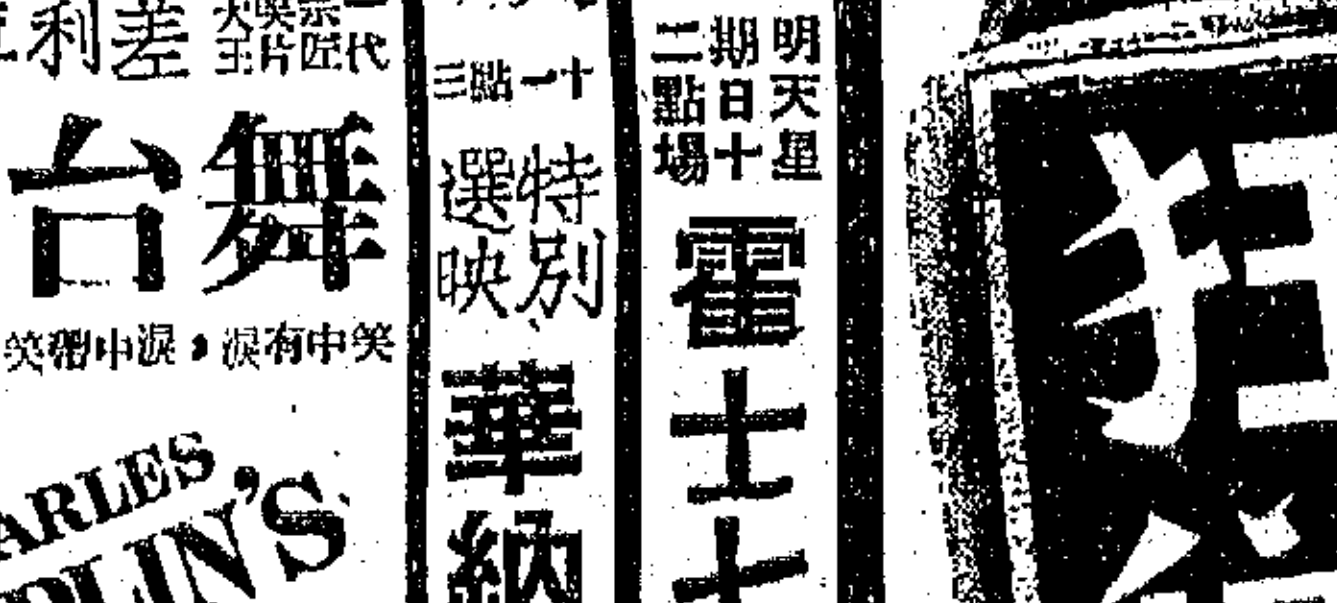 狂
明天星
期日十
二點場
霍士
十一點三
特別
選映
華納
一代
宗匠
笑片
大王
差利
舞台
笑中有淚，淚中帶笑
ARLES
PLIN'S